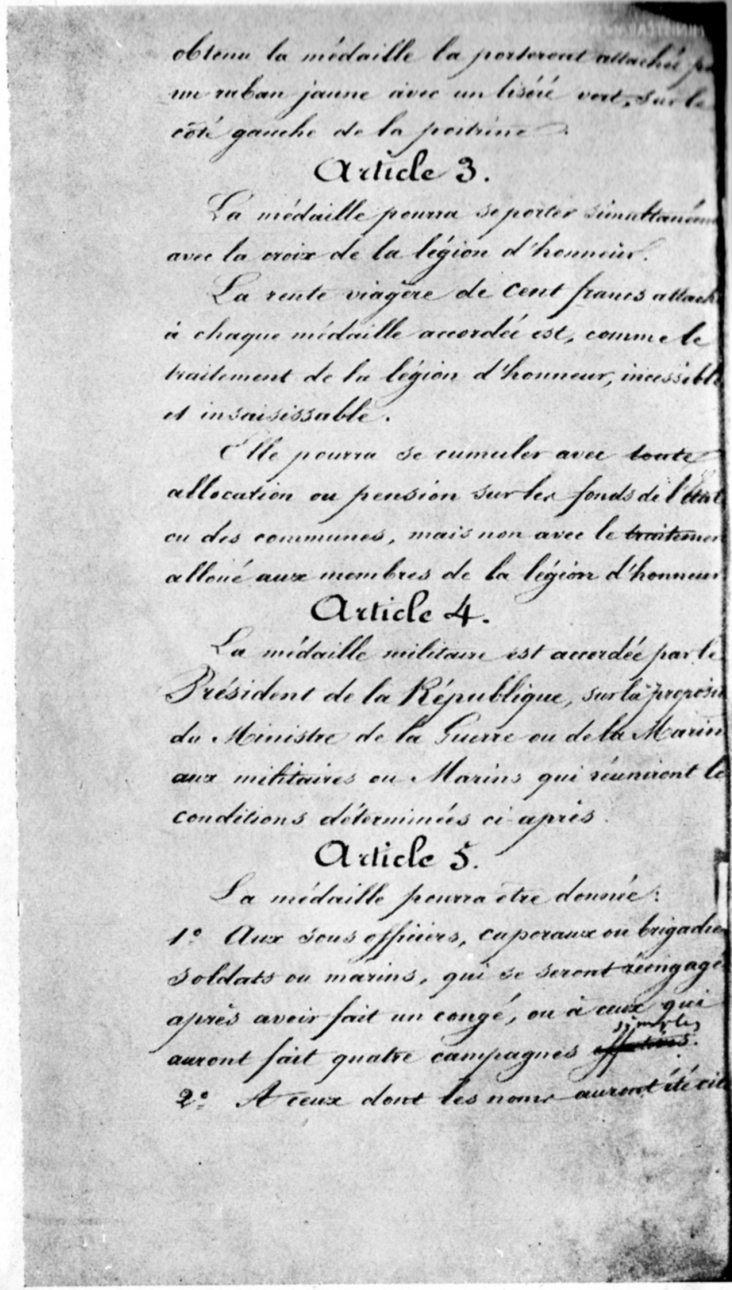 obtenu la médaille la porteront attachée pa
un ruban jaune avec un liséré vert, sur le
côté gauche de la poitrine.
Article 3.
La médaille pourra se porter simultaném
avec la croix de la légion d'honneur.
La rente viagère de cent francs attach
à chaque médaille accordée est, comme le
traitement de la légion d'honneur, incessible
et insaisissable.
Elle pourra se cumuler avec toute
allocation ou pension sur les fonds de l'état
ou des communes, mais non avec le traitemen
alloué aux membres de la légion d'honneur
Article 4.
La médaille militaire est accordée par le
Président de la République, sur la proposi
du Ministre de la Guerre ou de la Marin
aux militaires ou Marins qui réuniront le
conditions déterminées ci-après.
Article 5.
La médaille pourra être donnée:
1º Aux sous officiers, caporaux ou brigadie
soldats ou marins, qui se seront réengagé
après avoir fait un congé, ou à ceux qui
simples
auront fait quatre campagnes effectives.
2º A ceux dont les noms auront été cit